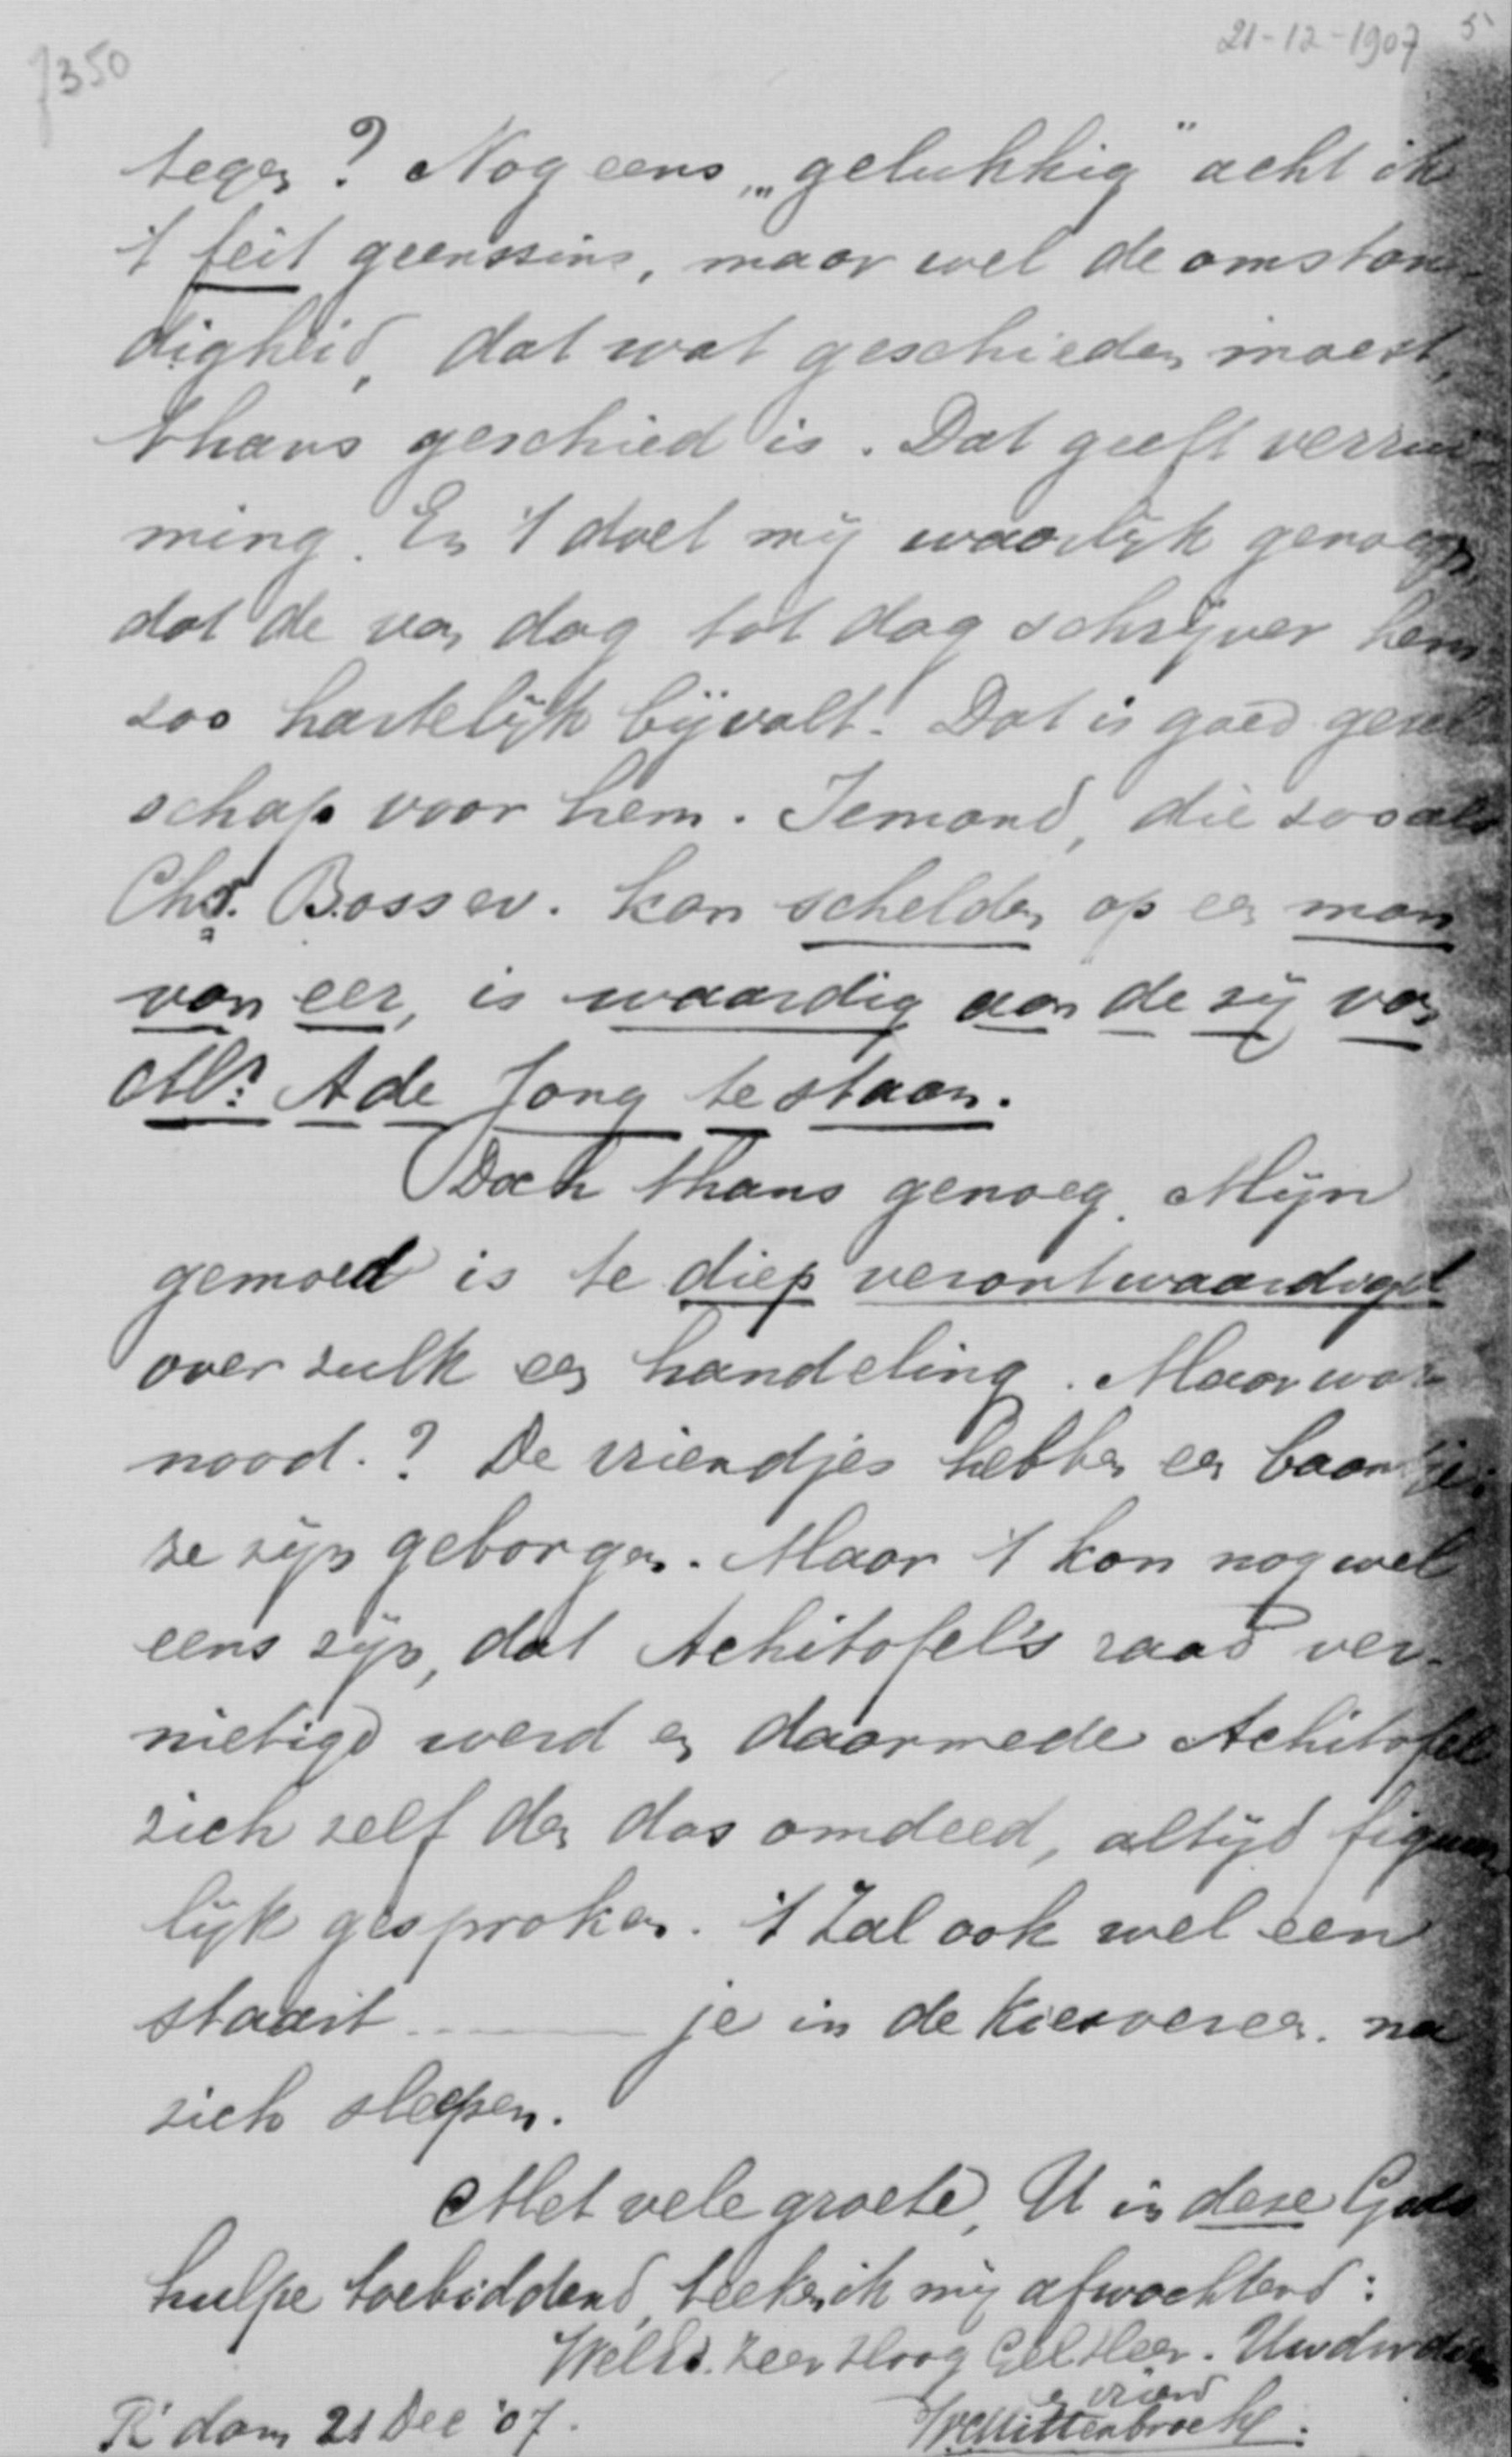 7350
21-12-1907 5
tegen? Nog eens „gelukkig" acht ik
't feit geenszins, maar wel de omstan-
digheid, dat wat geschieden moest,
thans geschied is. Dat geeft verrui-
ming. En 't doet mij waarlijk genoegen
dat de van dag tot dag schrijver hem
zoo hartelijk bijvalt! Dat is goed gezel
schap voor hem. Iemand, die zooals
Chr. Bossev. kan schelden op een man
van eer, is waardig aan de zij van
Mr. A de Jong te staan.
Doch thans genoeg. Mijn
gemoed is te diep verontwaardigd
over zulk een handeling. Maar wat
nood.? De vriendjes hebben een baantje;
ze zijn geborgen. Maar 't kon nog wel
eens zijn, dat Achitofel's raad ver-
nietigd werd en daarmede Achitofel
zich zelf den das omdeed, altijd figuur
lijk gesproken. 't Zal ook wel een
staart ---- je in de Kiesvereen. na
zich sleepen.
Met vele groete, U in deze Gods
hulpe toebiddend, teeken ik mij afwachtend:
WelEd. Zeer Hoog Gel Heer. Uw dw
en vriend
R'dam 21 Dec '07. Wittenbroek.